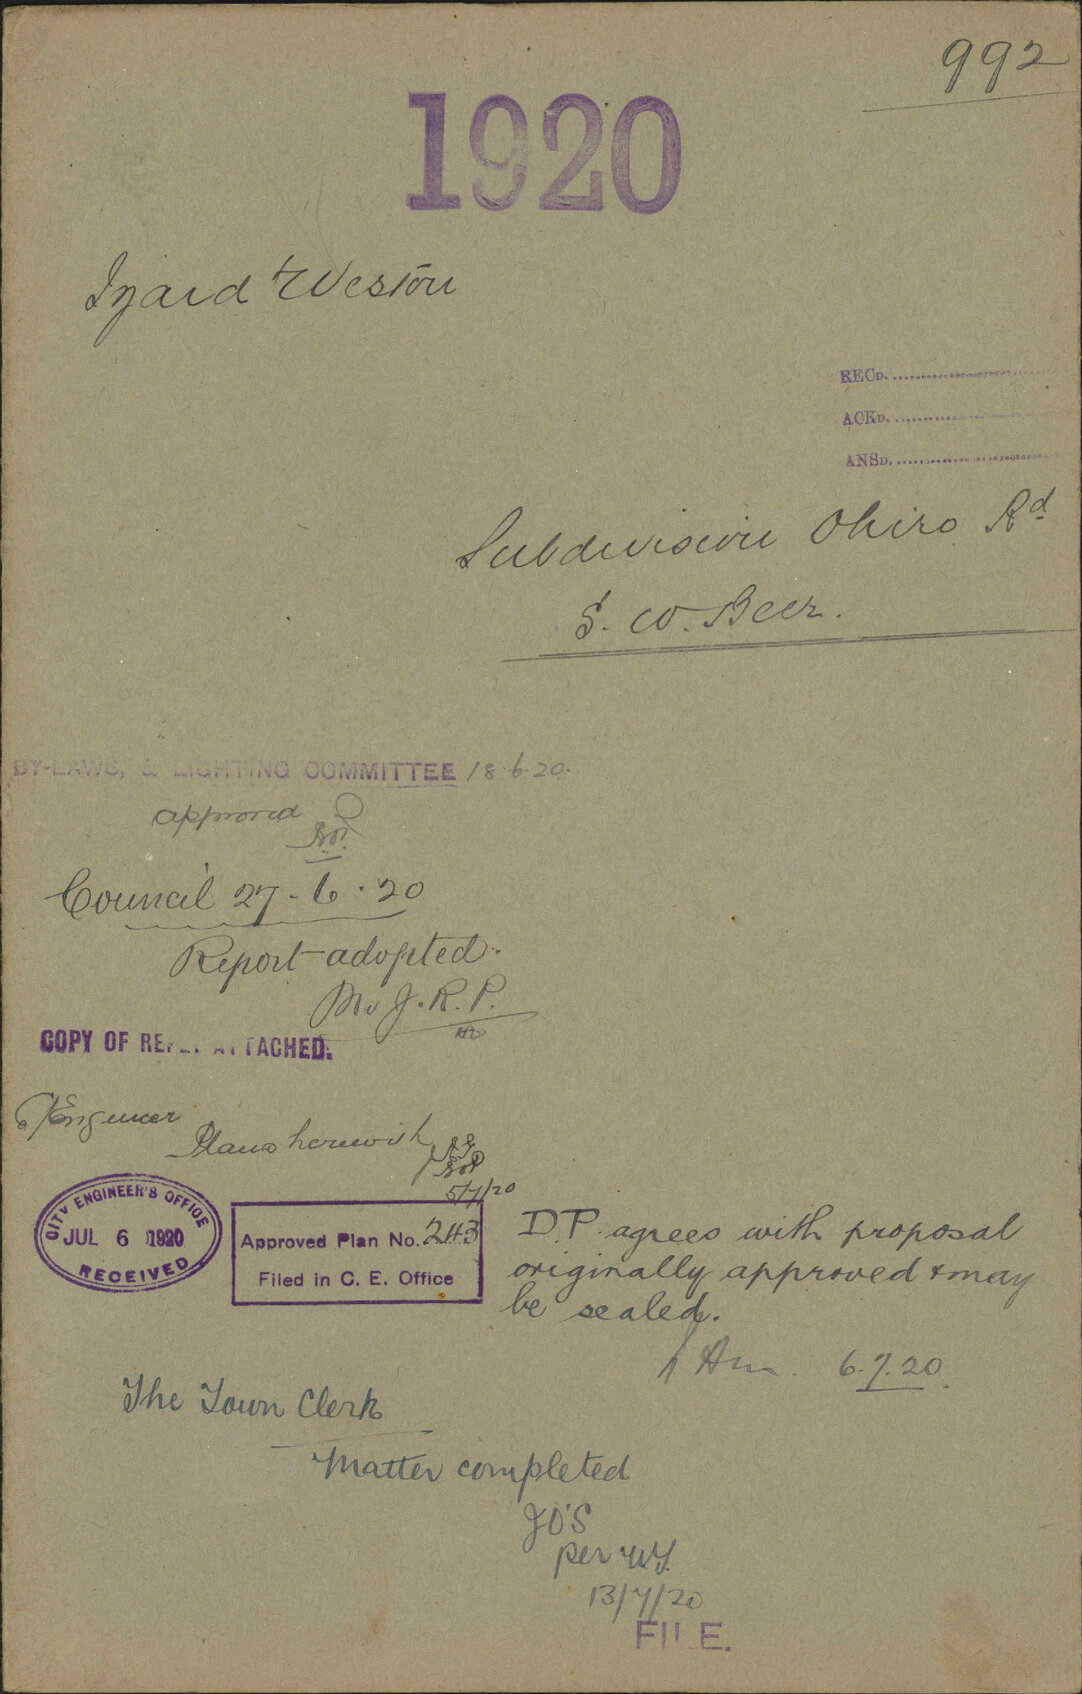 992
1920
Izard & Weston
RECD.
ACKD.
ANSD.
Subdivision Ohiro Rd
S. W. Beer.
BY-LAWS, & LIGHTING COMMITTEE 18.6.20.
approved
Council 27-6.20
Report adopted.
J.R.P.
COPY OF REPLY ATTACHED.
C/Engineer
Plans herewith
5/7/20
CITY ENGINEER'S OFFICE
JUL 6 1920
RECEIVED
Approved Plan No. 243
Filed in C. E. Office
D.P. agrees with proposal
originally approved & may
be sealed.
6.7.20.
The Town Clerk
Matter completed
JO'S
per
13/7/20
FILE.